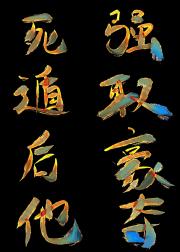 死遁后他
强取豪夺